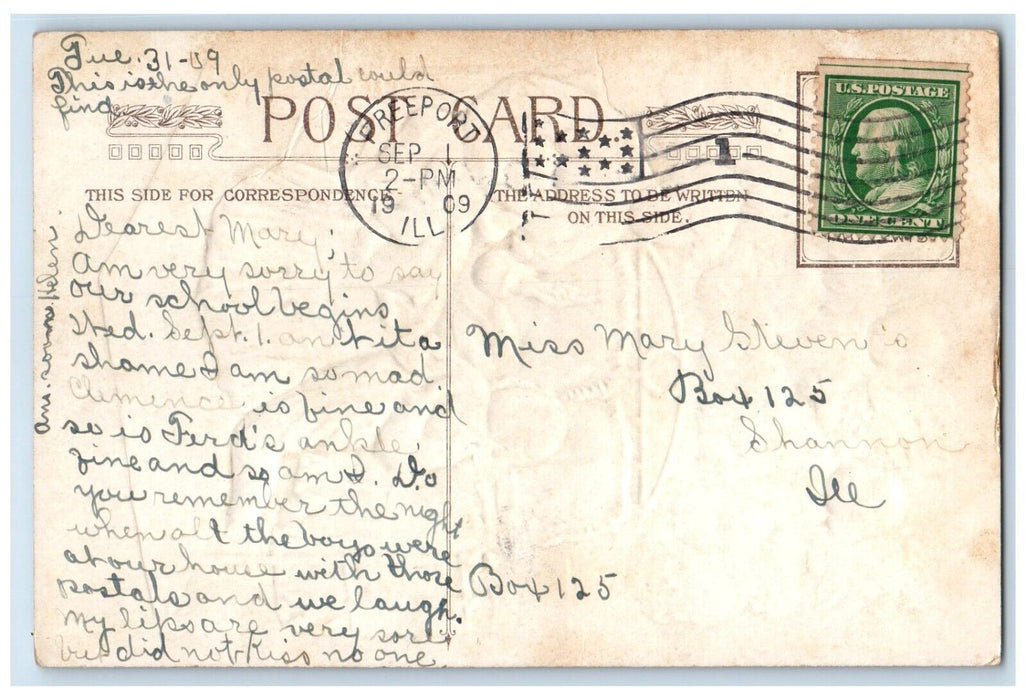 Tue. 31-09
This is the only postal could
find
POST CARD
FREEPORT
SEP 1
2-PM
19 09
ILL
1
U.S. POSTAGE
ONE CENT
THIS SIDE FOR CORRESPONDENCE
THE ADDRESS TO BE WRITTEN
ON THIS SIDE.
Dearest Mary;
Am very sorry to say
our school begins
Wed. Sept. 1. ant it a
shame I am so mad.
Clemence is fine and
so is Ferd's ankle,
fine and so am I. Do
you remember the night
when all the boys were
at our house with those
postals and we laugh.
My lips are very sore
but did not kiss no one
ans. soon Helen
Miss Mary Steven
Box 125
Shannon
Ill
Box 125